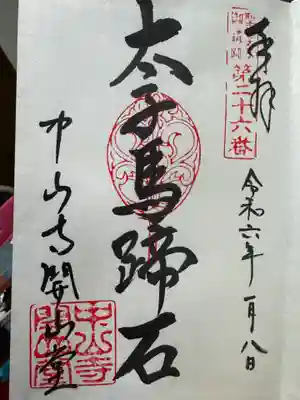 奉拝
第二十六番
令和六年一月八日
太子馬蹄石
中山寺開山堂
中山寺
開山堂